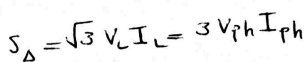 S_Δ = √3 V_L I_L = 3 V_ph I_ph